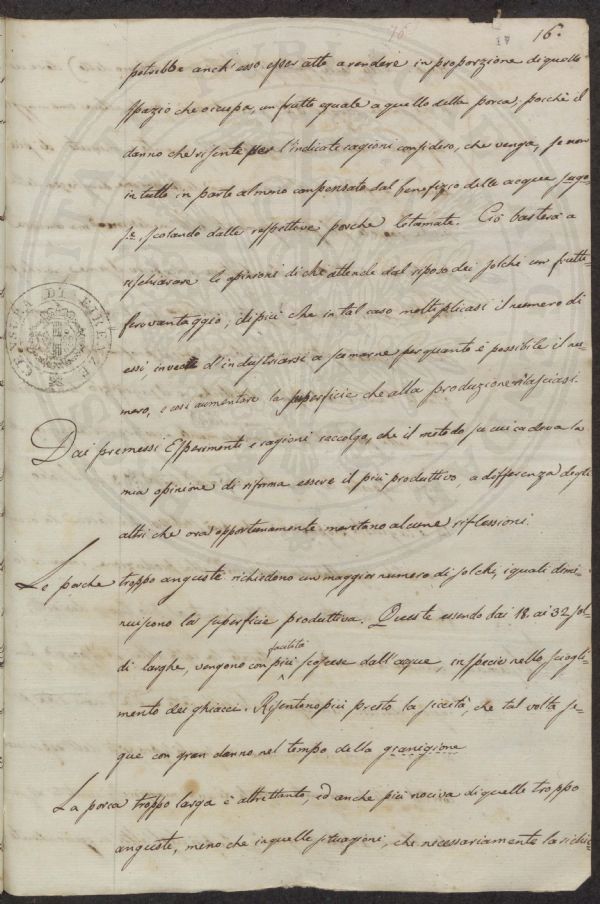 16.
potrebbe anch'esso esser atto a rendere in proporzione di quello
spazio che occupa, un frutto eguale a quello delle porca; poichè il
danno che risente per l'indicate ragioni considero, che venga, se non
in tutto in parte almeno compensato dal benefizio delle acque sugo-
se, scolando dalle rispettive porche lotamate. Ciò basterà a
rischiarare le opinioni di chi attende dal riposo dei solchi un frutti-
fero vantaggio, di più che in tal caso moltiplicasi il numero di
essi, invece d'industriarsi a scemarne per quanto è possibile il nu-
mero, e così aumentare la superficie che alla produzione rilasciasi.
Dai premessi Esperimenti e ragioni raccolgo, che il metodo su cui cadeva la
mia opinione di riforma essere il più produttivo, a differenza degli
altri che ora opportunamente meritano alcune riflessioni.
Le porche troppo anguste richiedono un maggior numero di solchi, i quali dimi-
nuiscono la superficie produttiva. Queste essendo dai 18. ai 32 sol-
di larghe, vengono con più facilità scoscese dall'acque, in specie nello sciogli-
mento dei ghiacci. Risentono più presto la siccità, che tal volta se-
gue con gran danno nel tempo della granigione
La porca troppo larga è altrettanto, ed anche più nociva di quelle troppo
anguste, meno che in quelle situazioni, che necessariamente la richie-